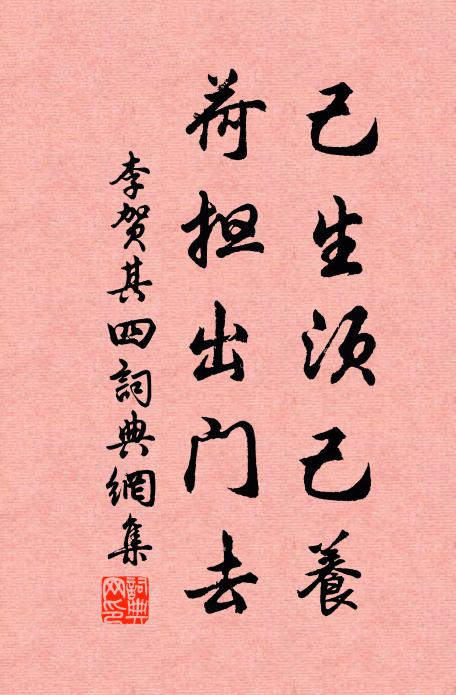 己生须己養
荷担出门去
李贺其四詞典網集
詞典網印